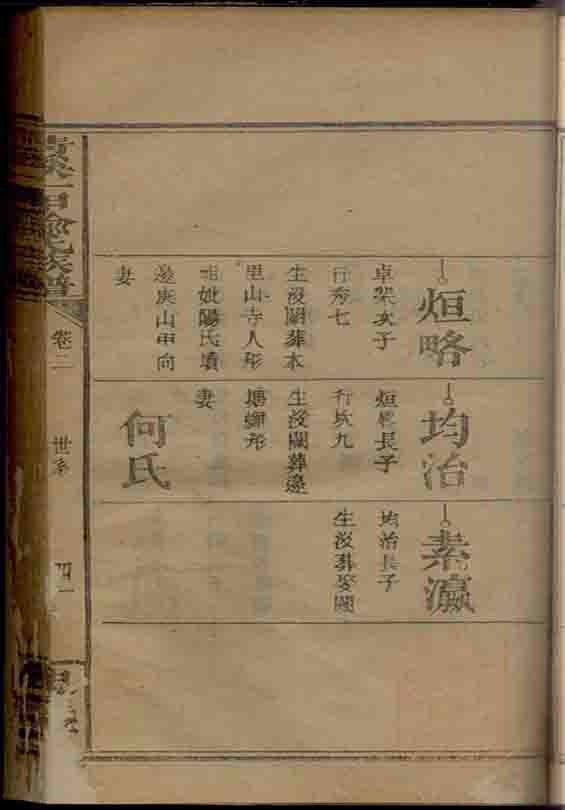 烜略
卓棨次子
行秀七
生沒闕葬本
里山寺人形
祖妣陽氏墳
邊庚山甲向
妻
均治
烜略長子
行玖九
生沒闕葬邊
塘蟬形
妻
何氏
素瀛
均治長子
生沒葬娶闕
氏族譜
卷二
世系
四一